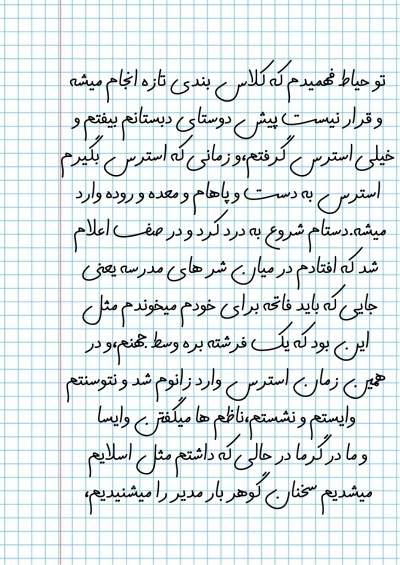 تو حیاط فهمیدم که کلاس بندی تازه انجام میشه
و قرار نیست پیش دوستای دبستانم بیفتم و
خیلی استرس گرفتم،و زمانی که استرس بگیرم
استرس به دست و پاهام و معده و روده وارد
میشه.دستام شروع به درد کرد و در صف اعلام
شد که افتادم در میان شر های مدرسه یعنی
جایی که باید فاتحه برای خودم میخوندم مثل
این بود که یک فرشته بره وسط جهنم،و در
همین زمان استرس وارد زانوم شد و نتوسنتم
وایستم و نشستم،ناظم ها میگفتن وایسا
و ما در گرما در حالی که داشتم مثل اسلایم
میشدیم سخنان گوهر بار مدیر را میشنیدیم،